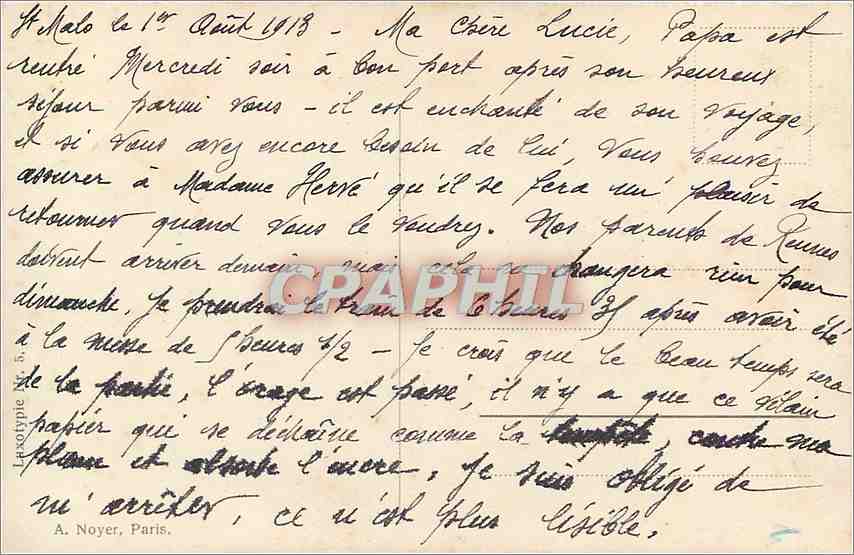 St Malo le 1er Août 1913 - Ma Chère Lucie, Papa est
rentré Mercredi soir à bon port après son heureux
séjour parmi vous - il est enchanté de son voyage,
et si vous avez encore besoin de lui, vous pouvez
assurer à Madame Hervé qu'il se fera un plaisir de
retourner quand vous le voudrez. Nos parents de Rennes
doivent arriver demain, mais cela ne changera rien pour
dimanche. Je prendrai le train de 6 heures 35 après avoir été
à la messe de 5 heures 1/2 - Je crois que le beau temps sera
de la partie, l'orage est passé, il n'y a que ce vilain
papier qui se déchaîne comme la tempête, contre ma
plume et absorbe l'encre. Je suis obligé de
m'arrêter, ce n'est plus lisible.
CPARPHIL
Luxotypie Nr. 5.
A. Noyer, Paris.